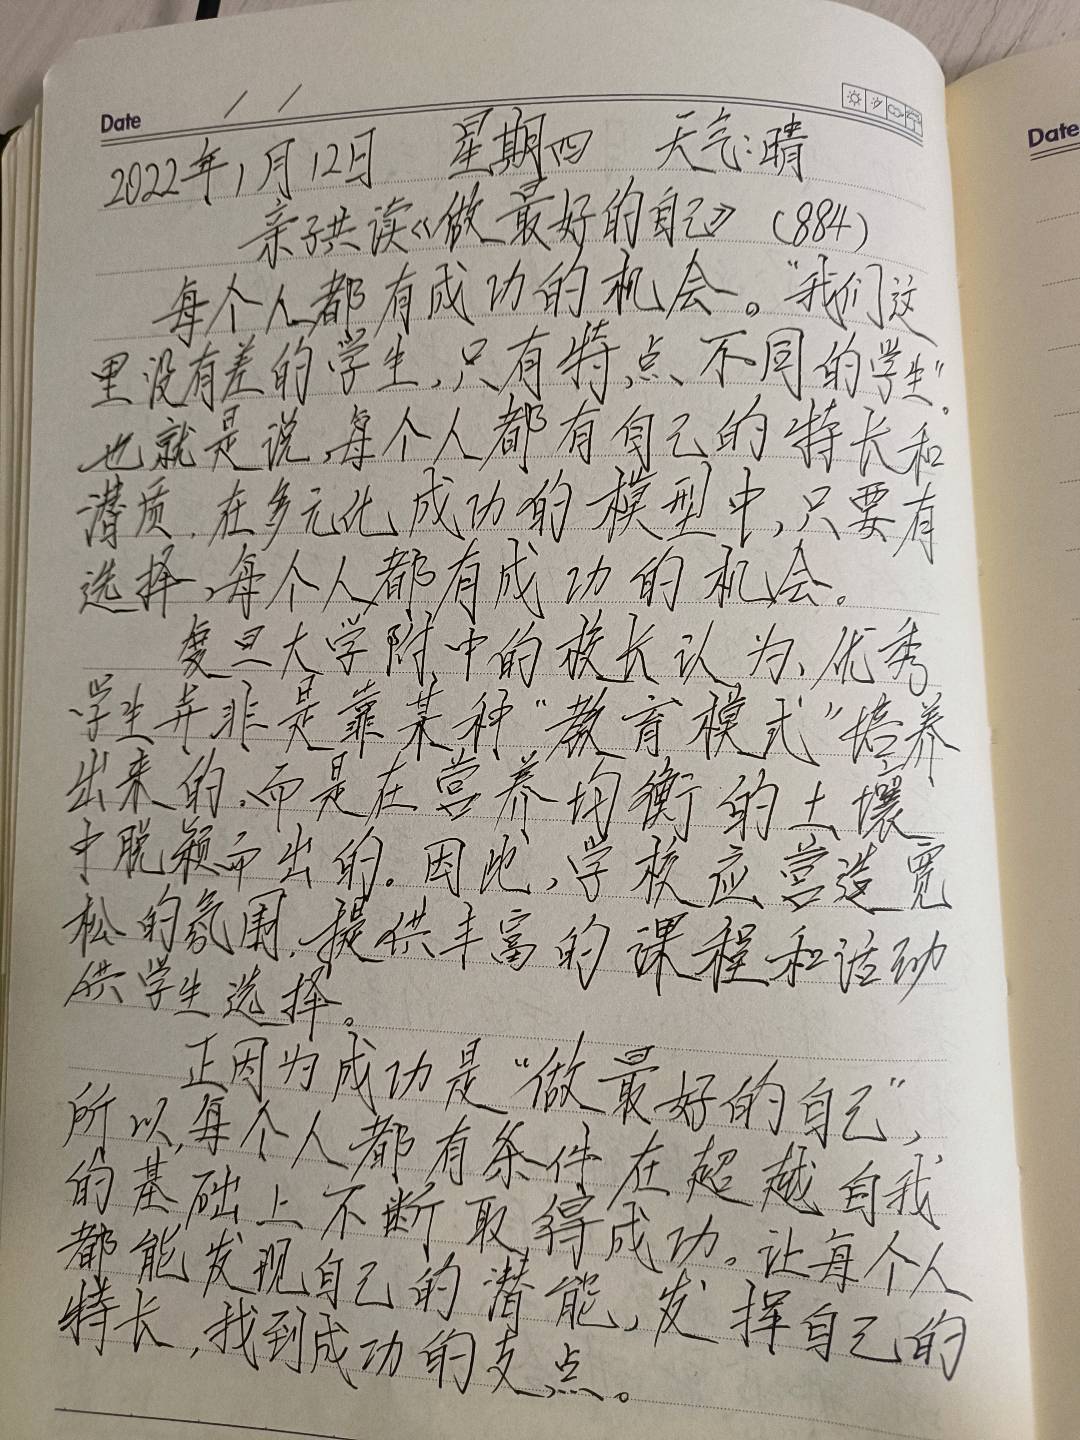 Date / /
2022年1月12日 星期四 天气:晴
亲子共读《做最好的自己》(884)
每个人都有成功的机会。“我们这
里没有差的学生,只有特点、不同的学生”。
也就是说,每个人都有自己的特长和
潜质,在多元化成功的模型中,只要有
选择,每个人都有成功的机会。
复旦大学附中的校长认为,优秀
学生并非是靠某种“教育模式”培养
出来的,而是在营养均衡的土壤
中脱颖而出的。因此,学校应营造宽
松的氛围,提供丰富的课程和活动
供学生选择。
正因为成功是“做最好的自己”,
所以,每个人都有条件在超越自我
的基础上不断取得成功。让每个人
都能发现自己的潜能,发挥自己的
特长,找到成功的支点。
Date